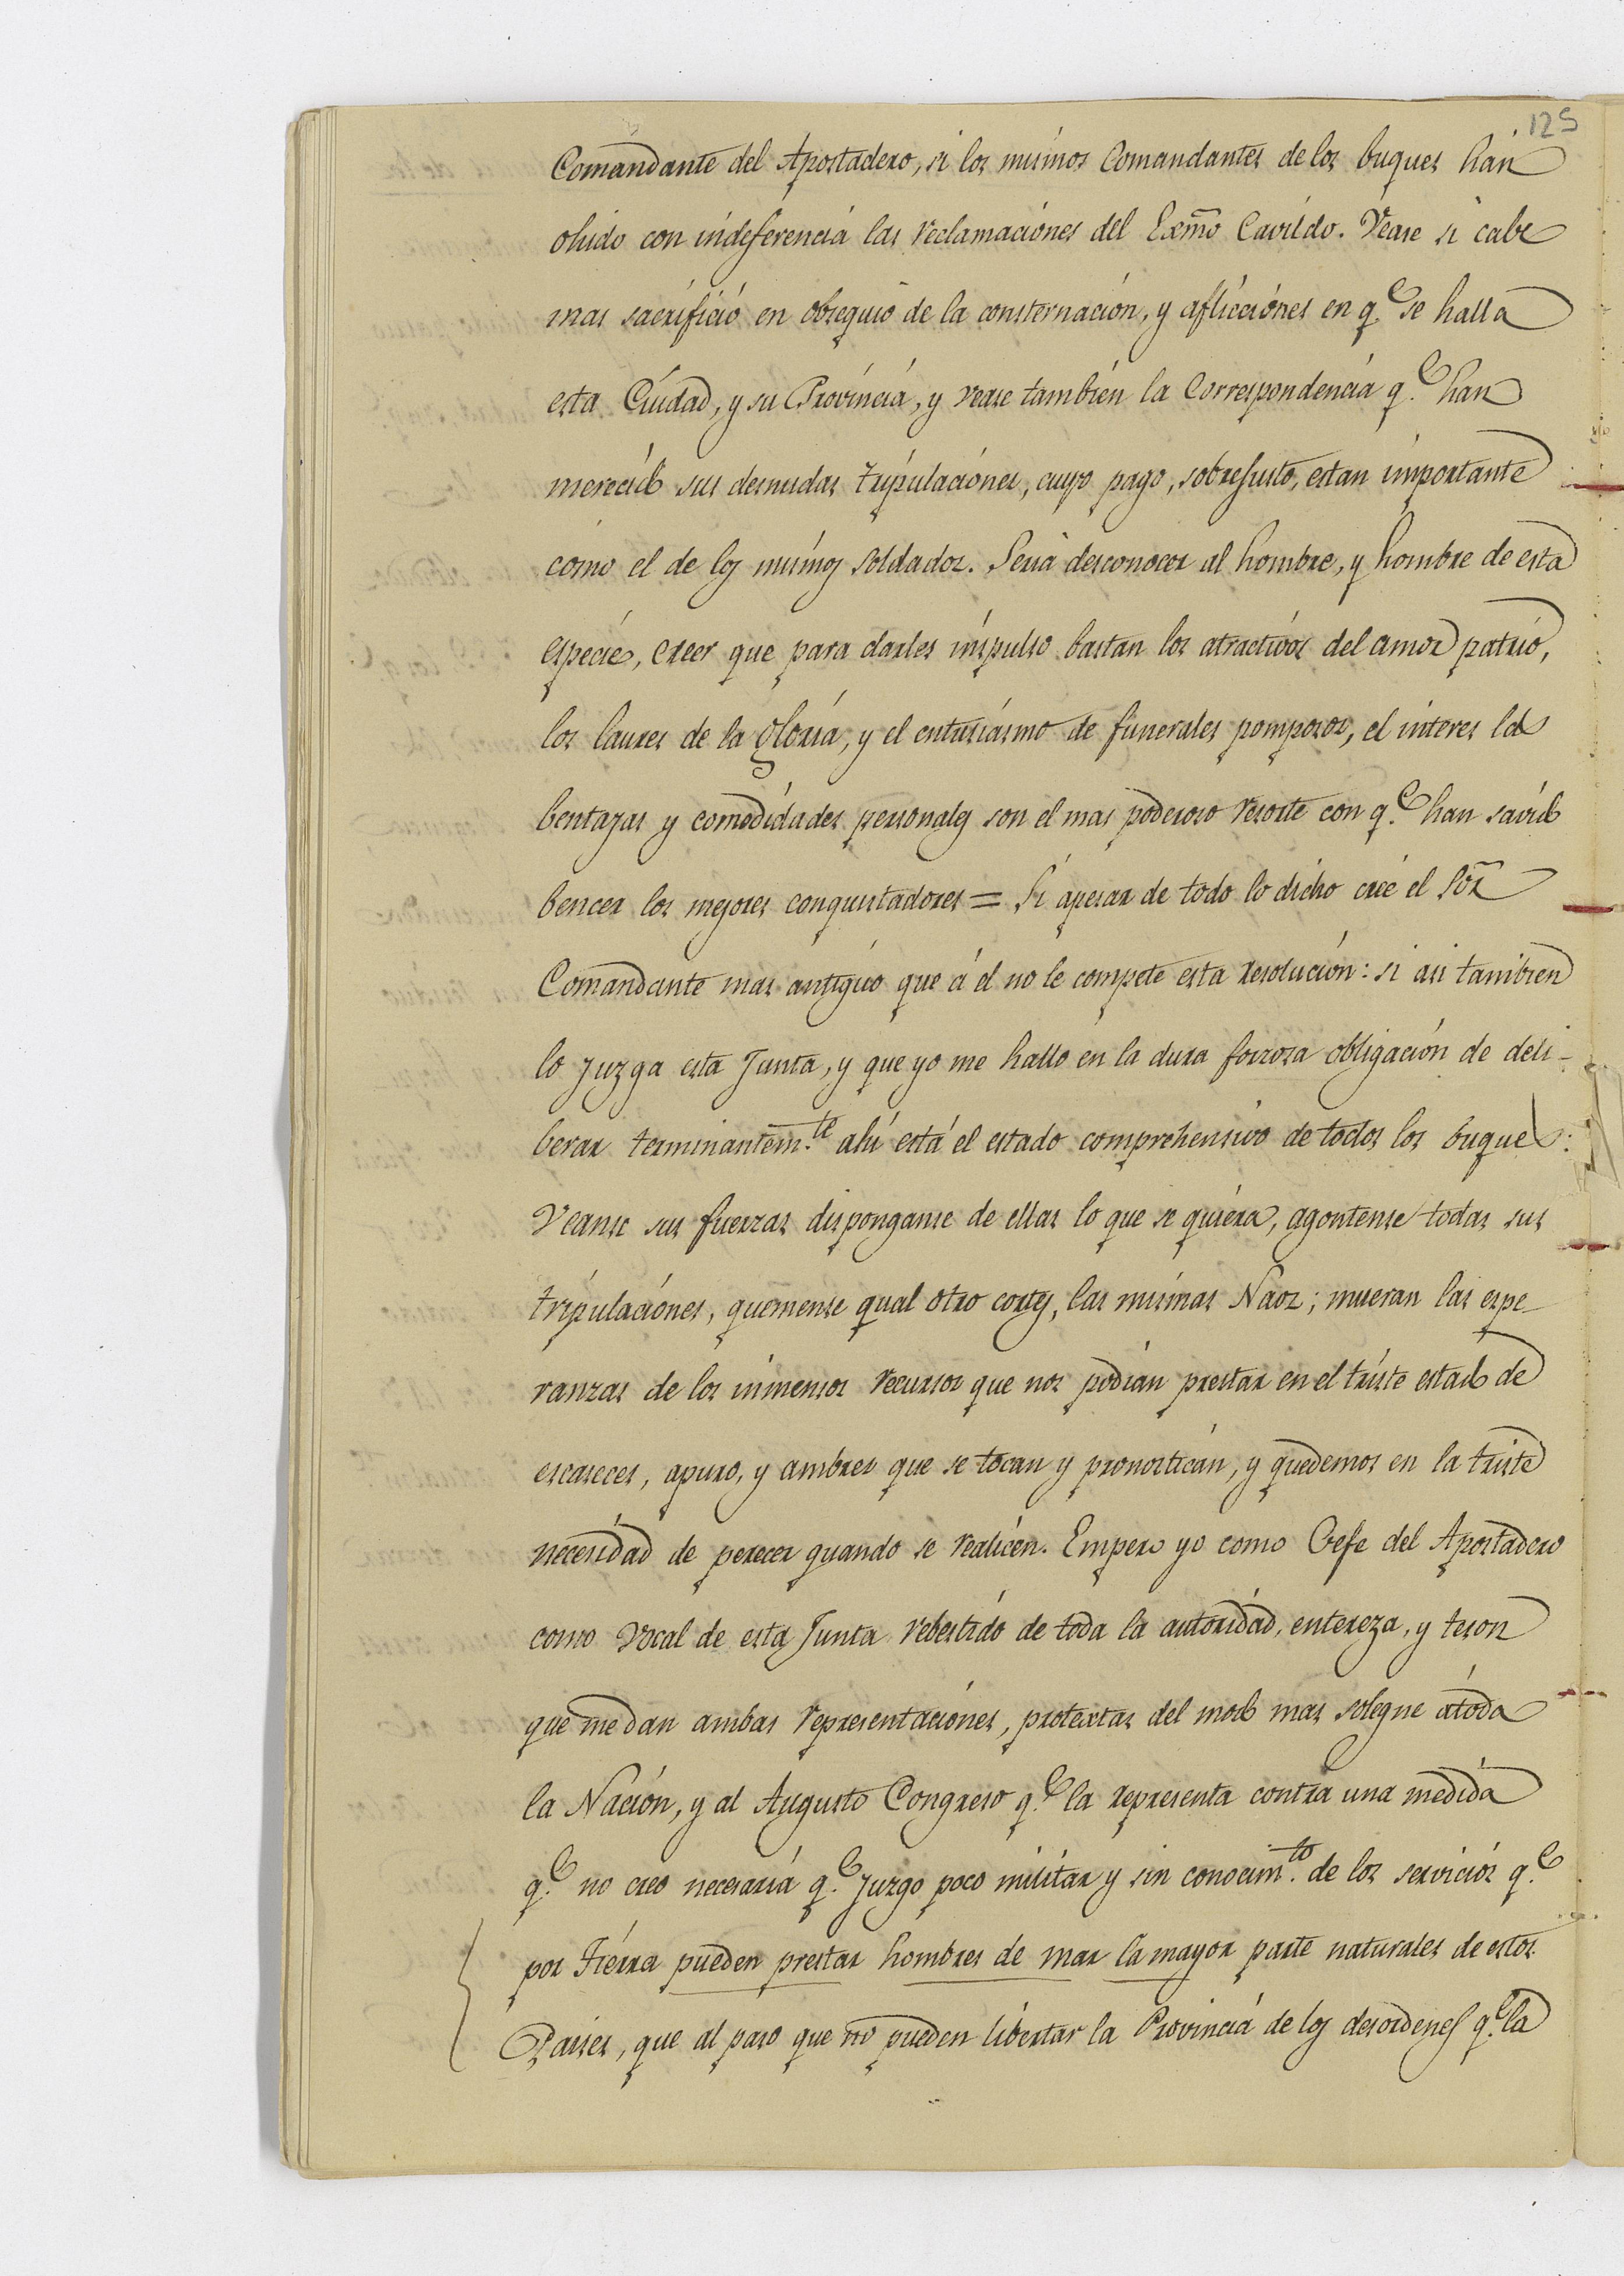 125
Comandante del Apostadero, si los mismos Comandantes de los buques hán
ohido con indeferencia las reclamaciónes del Exm̃o Cavildo. Véase si cabe
mas sacrifició en obsequio de la consternación, y aflicciónes en q.e se halla
esta Ciudad, y su Provincia, y vease también la Correspondencia q.e han
merecido sus desnudas tripulaciónes, cuyo pago, sobresusto, estan importante
cómo el de los mismos soldados. Seria desconocer al hombre, y hombre de esta
especie, creer que para darles impulso bastan los atractivos del amor patrio,
los laures de la gloria, y el enturiásmo de funerales pomposos, el interes las
bentajas y comodidades personales son el mas poderoso resorte con q.e han savido
bencer los mejores conquistadores = Si apesar de todo lo dicho crée el Sõr
Comandante mas antiguo que á el no le compete esta resolución: si asi tambien
lo juzga esta Junta, y que yo me hallo en la dura forzosa obligación de deli-
berar terminantem.te ahí está el estado comprehensivo de todos los buques:
Veanse sus fuerzas disponganse de ellas lo que se quiéra, agontense todas sus
tripulaciónes, quemense qual otro cortes, las mismas Náos; mueran las espe-
ranzas de los inmensos recursos que nos podian prestar en el triste estado de
escaseces, apuro, y ambres que se tocan y pronostican, y quedemos en la triste
necesidad de perecer quando se realicen. Empero yo como Gefe del Apostadero
como vocal de esta Junta rebestido de toda la autoridad, entereza, y teson
que me dan ambas representaciónes, protextas del modo mas solegne átoda
la Nación, y al Augusto Congreso q.e la representa contra una medida
q.e no creo necesaria q.e juzgo poco militar y sin conocim.to de los servicios q.e
por Tiérra pueden prestar hombres de mar la mayor parte naturales de estos
Paises, que al paso que no pueden libertar la Provincia de los desordenes q.e la